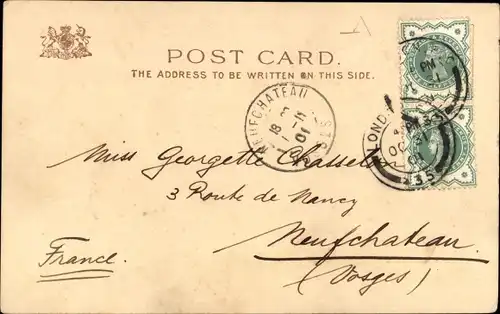 POST CARD.
THE ADDRESS TO BE WRITTEN ON THIS SIDE.
NEUFCHATEAU
VOSGES
LONDON
PM
OC
Miss Georgette Chassel
3 Route de Nancy
Neufchateau
(Vosges)
France.